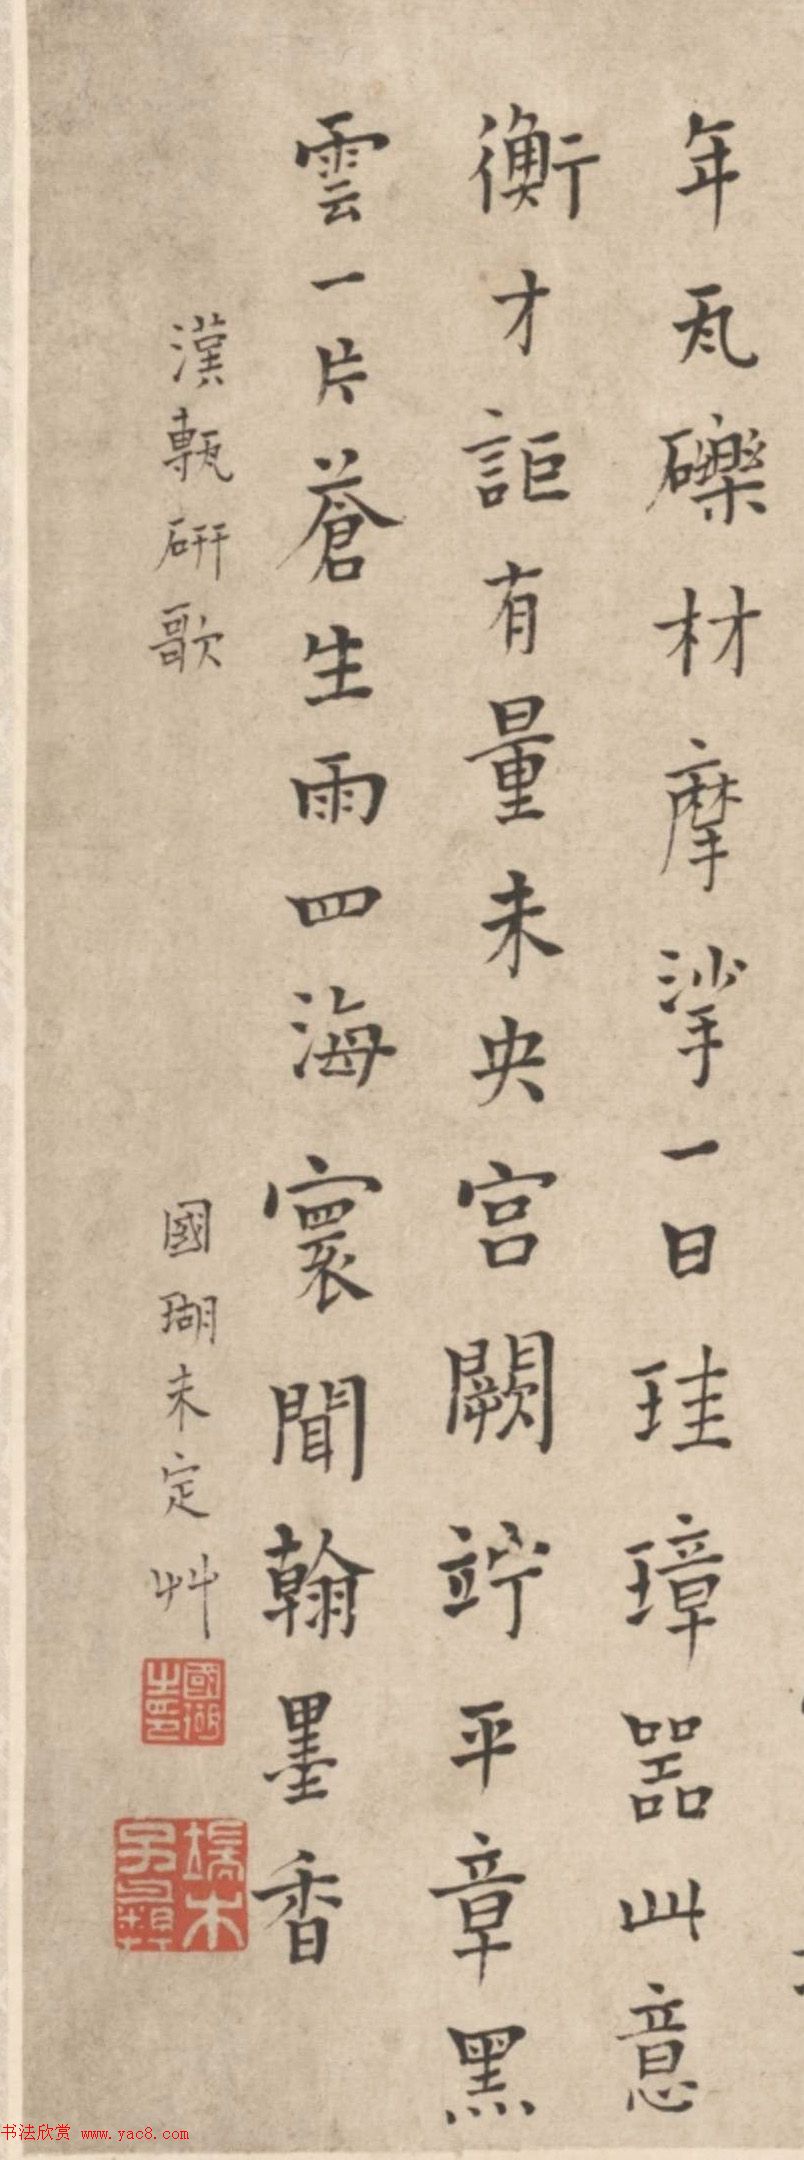 年瓦礫材摩挲一日珪璋器此意
衡才詎有量未央宮闕竚平章黑
雲一片蒼生雨四海寰聞翰墨香
漢甎研歌
國瑚未定艸
國瑚之印
端木
书法欣赏 www.yac8.com